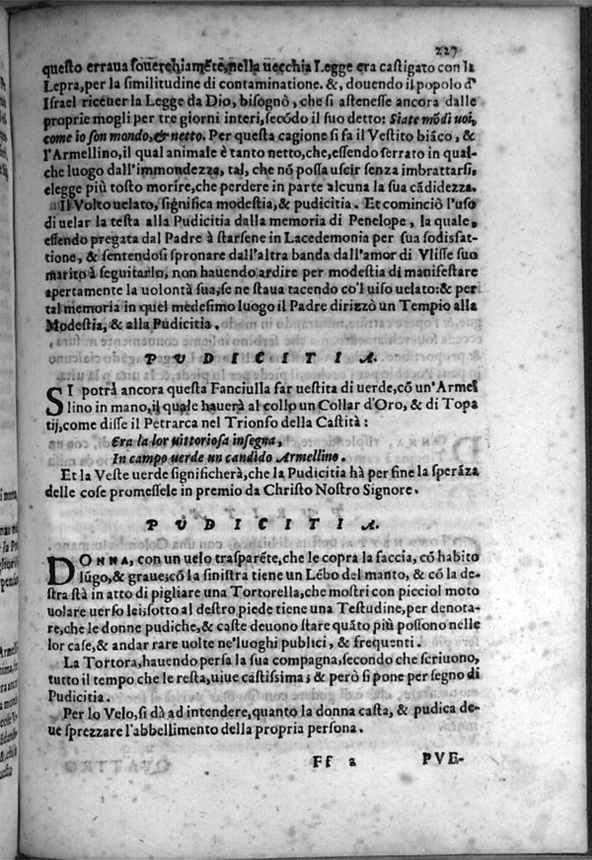 227
questo erraua souerchiamẽte, nella uecchia Legge era castigato con la
Lepra, per la similitudine di contaminatione. &, douendo il popolo d'
Israel riceuer la Legge da Dio, bisognò, che si astenesse ancora dalle
proprie mogli per tre giorni interi, secõdo il suo detto: Siate mõdi uoi,
come io son mondo, & netto. Per questa cagione si fa il Vestito biãco, &
l'Armellino, il qual animale è tanto netto, che, essendo serrato in qual-
che luogo dall'immondezza, tal, che nõ possa uscir senza imbrattarsi,
elegge più tosto morire, che perdere in parte alcuna la sua cãdidezza.
Il Volto uelato, significa modestia, & pudicitia. Et cominciò l'uso
di uelar la testa alla Pudicitia dalla memoria di Penelope, la quale,
essendo pregata dal Padre à starsene in Lacedemonia per sua sodisfat-
tione, & sentendosi spronare dall'altra banda dall'amor di Vlisse suo
marito à seguitarlo, non hauendo ardire per modestia di manifestare
apertamente la uolontà sua, se ne staua tacendo co'l uiso uelato: & per
tal memoria in quel medesimo luogo il Padre dirizzò un Tempio alla
Modestia, & alla Pudicitia.
PVDICITIA.
SI potrà ancora questa Fanciulla far uestita di uerde, cõ un'Armel
lino in mano, il quale hauerà al collo un Collar d'Oro, & di Topa
tij, come disse il Petrarca nel Trionfo della Castità:
Era la lor uittoriosa insegna,
In campo uerde un candido Armellino.
Et la Veste uerde significherà, che la Pudicitia hà per fine la sperãza
delle cose promessele in premio da Christo Nostro Signore.
PVDICITIA.
DONNA, con un uelo trasparẽte, che le copra la faccia, cõ habito
lũgo, & graue; cõ la sinistra tiene un Lẽbo del manto, & cõ la de-
stra stà in atto di pigliare una Tortorella, che mostri con picciol moto
uolare uerso lei; sotto al destro piede tiene una Testudine, per denota-
re, che le donne pudiche, & caste deuono stare quãto più possono nelle
lor case, & andar rare uolte ne'luoghi publici, & frequenti.
La Tortora, hauendo persa la sua compagna, secondo che scriuono,
tutto il tempo che le resta, uiue castissima; & però si pone per segno di
Pudicitia.
Per lo Velo, si dà ad intendere, quanto la donna casta, & pudica de-
ue sprezzare l'abbellimento della propria persona.
Ff 2 PVE-